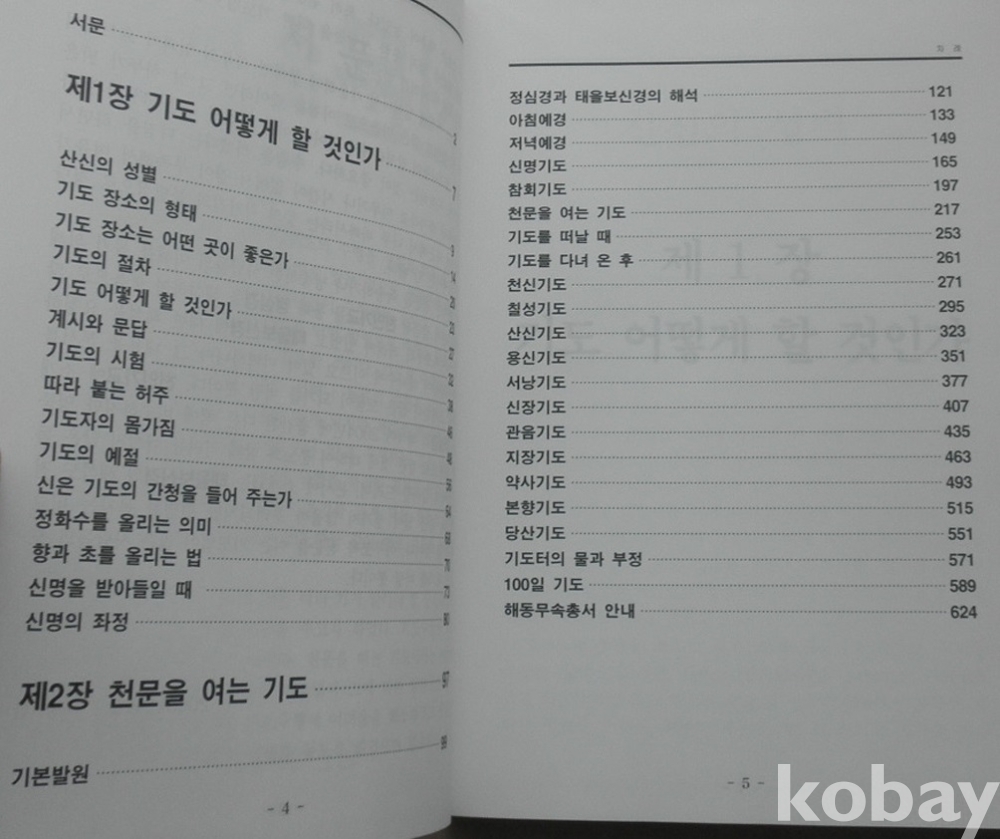 서문
제1장 기도 어떻게 할 것인가
산신의 성별
기도 장소의 형태
기도 장소는 어떤 곳이 좋은가
기도의 절차
기도 어떻게 할 것인가
계시와 문답
기도의 시험
따라 붙는 허주
기도자의 몸가짐
기도의 예절
신은 기도의 간청을 들어 주는가
정화수를 올리는 의미
향과 초를 올리는 법
신명을 받아들일 때
신명의 좌정
제2장 천문을 여는 기도 97
기본발원
- 4 -
차 례
정심경과 태을보신경의 해석 121
아침예경 133
저녁예경 149
신명기도 165
참회기도 197
천문을 여는 기도 217
기도를 떠날 때 253
기도를 다녀 온 후 261
천신기도 271
칠성기도 295
산신기도 323
용신기도 351
서낭기도 377
신장기도 407
관음기도 435
지장기도 463
약사기도 493
본향기도 515
당산기도 551
기도터의 물과 부정 571
100일 기도 589
해동무속총서 안내 624
- 5 -
kobay